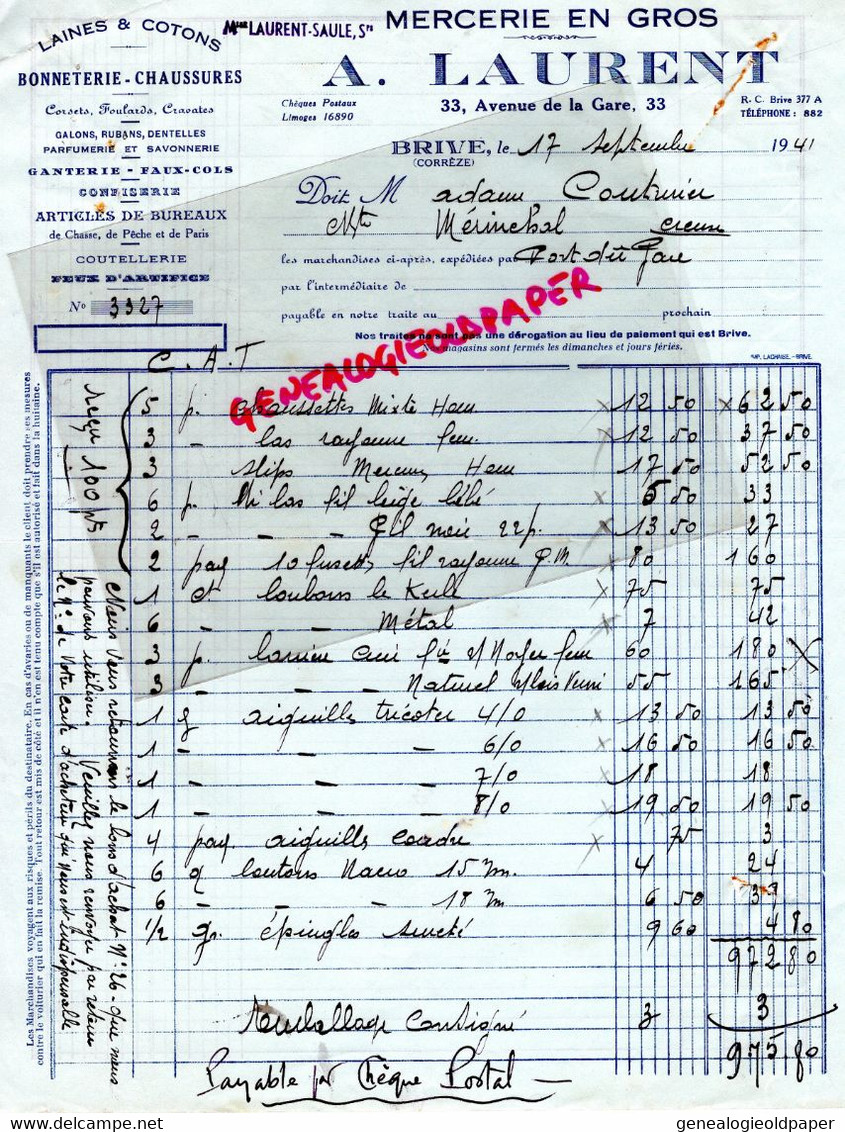 LAINES & COTONS
BONNETERIE - CHAUSSURES
Corsets, Foulards, Cravates
GALONS, RUBANS, DENTELLES
PARFUMERIE ET SAVONNERIE
GANTERIE - FAUX-COLS
CONFISERIE
ARTICLES DE BUREAUX
de Chasse, de Pêche et de Paris
COUTELLERIE
FEUX D'ARTIFICE
Nº 3327
MME LAURENT-SAULE, Sr
MERCERIE EN GROS
A. LAURENT
Chèques Postaux
Limoges 16890
33, Avenue de la Gare, 33
R. C. Brive 377 A
TÉLÉPHONE : 882
BRIVE, le 17 Septembre 1941
(CORRÈZE)
Doit M adame Couturier
Mérinchal Creuse
les marchandises ci-après, expédiées par Port dû Gare
par l'intermédiaire de
payable en notre traite au prochain
Nos traites ne sont pas une dérogation au lieu de paiement qui est Brive.
Nos magasins sont fermés les dimanches et jours fériés.
IMP. LACHAISE. - BRIVE
GENEALOGIEOLDPAPER
C. A. T
5 p. chaussettes Mixte Hom 12 50 62 50
3 - bas rayonne fem. 12 50 37 50
3 slips Hom 17 50 52 50
6 p. Mi bas fil liège bébé 5 50 33
2 - - - fil noir 22 p. 13 50 27
2 paq 10 fusettes fil rayonne G.M. 80 160
1 75 75
6 - - Métal 7 42
3 p. 60 180
3 - - - Naturel Verni 55 165
1 g aiguilles tricoter 4/0 13 50 13 50
1 - - - 6/0 16 50 16 50
1 - - 7/0 18 18
1 - - 8/0 19 50 19 50
4 paq. aiguilles coudre 75 3
6 g boutons Nacro 15 m. 4 24
6 - - - 18 m 6 50 39
1/2 gr. épingles sureté 9 60 4 80
972 80
emballage consigné 3 3
975 80
Payable par Chèque Postal
reçu 100 pts
Nous vous retournons le bons d'achat Nº 26 - que nous
pouvons utiliser. Veuillez nous renvoyer par retour
le Nº de votre carte d'acheteur qui nous est indispensable
Les Marchandises voyagent aux risques et périls du destinataire. En cas d'avaries ou de manquants le client doit prendre ses mesures
contre le voiturier qui en fait la remise. Tout retour est mis de côté et il n'en est tenu compte que s'il est autorisé et fait dans la huitaine.
genealogieoldpaper